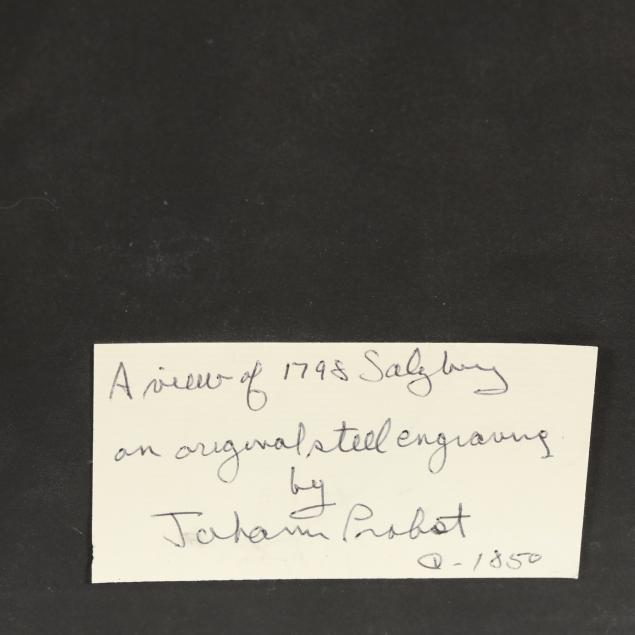 A view of 1798 Salzburg
an original steel engraving
by
Johann Probst
a - 1850